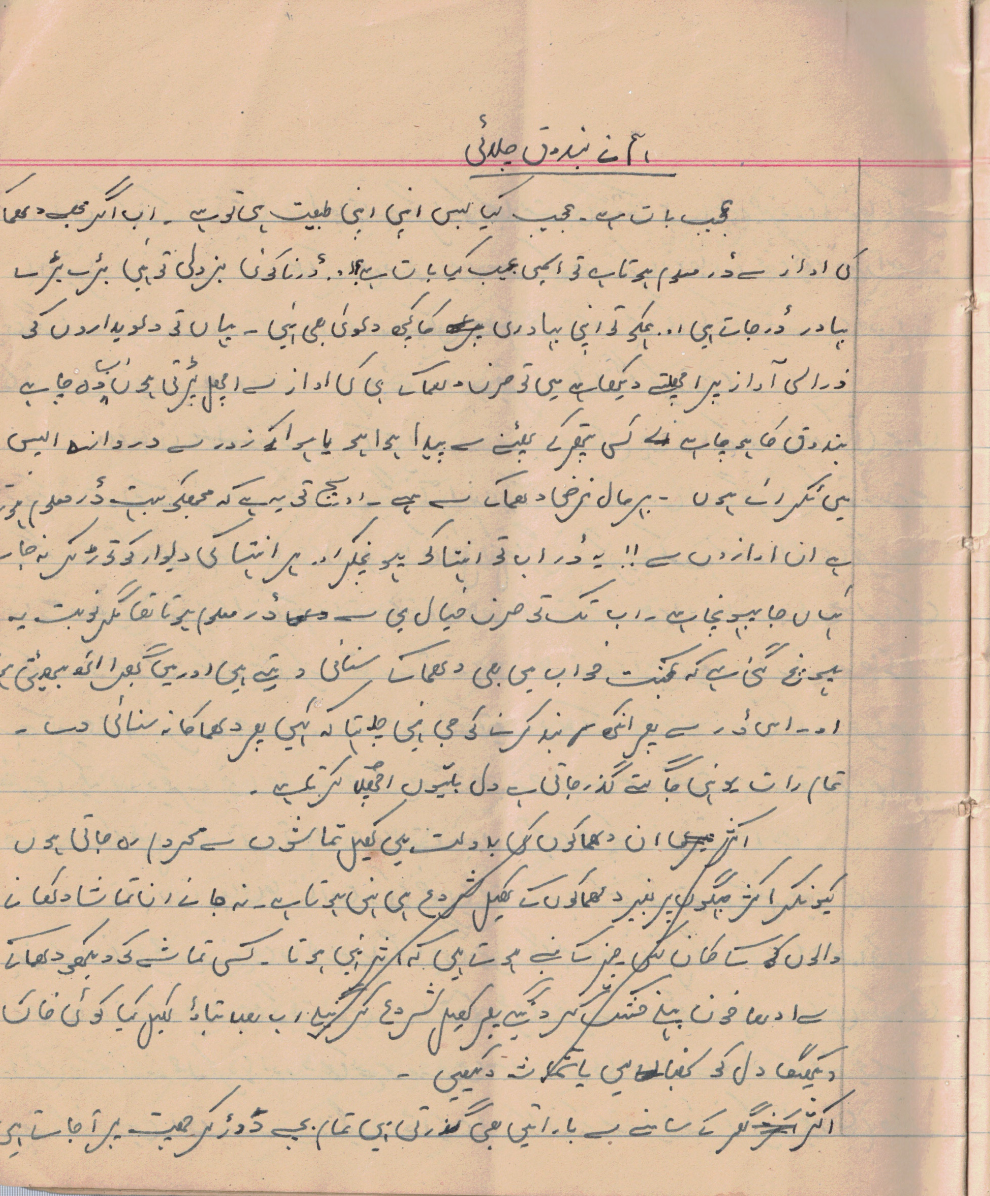 ہم نے بندوق چلائی
عجیب بات ہے۔ عجیب کیا بس اپنی اپنی طبیعت ہی تو ہے۔ اب اگر مجھے دھماکے
کی آواز سے ڈر معلوم ہوتا ہے تو اسمیں عجیب کیا بات ہے!!.. ڈرنا کوئی بزدلی تو نہیں بڑے بڑے
بہادر ڈر جاتے ہیں... مجکو تو اپنی بہادری کا کچھ دعویٰ بھی نہیں۔ یہاں تو دعویداروں کو
ذرا سی آواز پر اچھلتے دیکھا ہے میں تو صرف دھماکے ہی کی آواز سے اچھل پڑتی ہوں اب وہ چاہے
بندوق کا ہو چاہے کسی پتھر کے پھٹنے سے پیدا ہوا ہو یا ہوا کے زور سے دروازے آپس
میں ٹکرائے ہوں۔ بہرحال غرض دھماکے سے ہے۔ اور سچ تو یہ ہے کہ مجھکو بہت ڈر معلوم ہوتا
ہے ان آوازوں سے!! یہ ڈر اب تو انتہا کو پہونچکر اور پھر انتہا کی دیوار کو توڑ کر نہ جانے
کہاں جا پہونچا ہے۔ اب تک تو صرف خیال ہی سے ڈر معلوم ہوتا تھا مگر نوبت یہ
پہونچ گئی ہے کہ کمبخت خواب میں بھی دھماکے سنائی دیتے ہیں اور میں گھبرا اٹھ بیٹھتی ہوں
اور اسی ڈر سے پھر آنکھ بند کرنے کو جی نہیں چاہتا کہ کہیں پھر دھماکا نہ سنائی دے۔
تمام رات یونہی جاگتے گذر جاتی ہے دل بلیوں اچھلا کرتا ہے۔
اکثر ان دھماکوں کی بدولت میں کھیل تماشوں سے محروم رہ جاتی ہوں
کیونکہ اکثر جگہوں پر بغیر دھماکوں کے کھیل شروع ہی نہیں ہوتا ہے۔ نہ جانے ان تماشا دکھانے
والوں کے کان کس چیز کے بنے ہوتے ہیں کہ اثر نہیں ہوتا۔ کسی تماشے کو دیکھو دھماکے
سے آدھا خون پہلے خشک کر دینگے پھر کھیل شروع کرینگے اب بھلا بتاؤ کھیل کیا کوئی خاک
دیکھیگا دل کو سنبھالیں یا تماشہ دیکھیں۔
اکثر گھر کے سامنے سے باراتیں بھی گذرتی ہیں تمام بچے دوڑ کر چھت پر آ جاتے ہیں